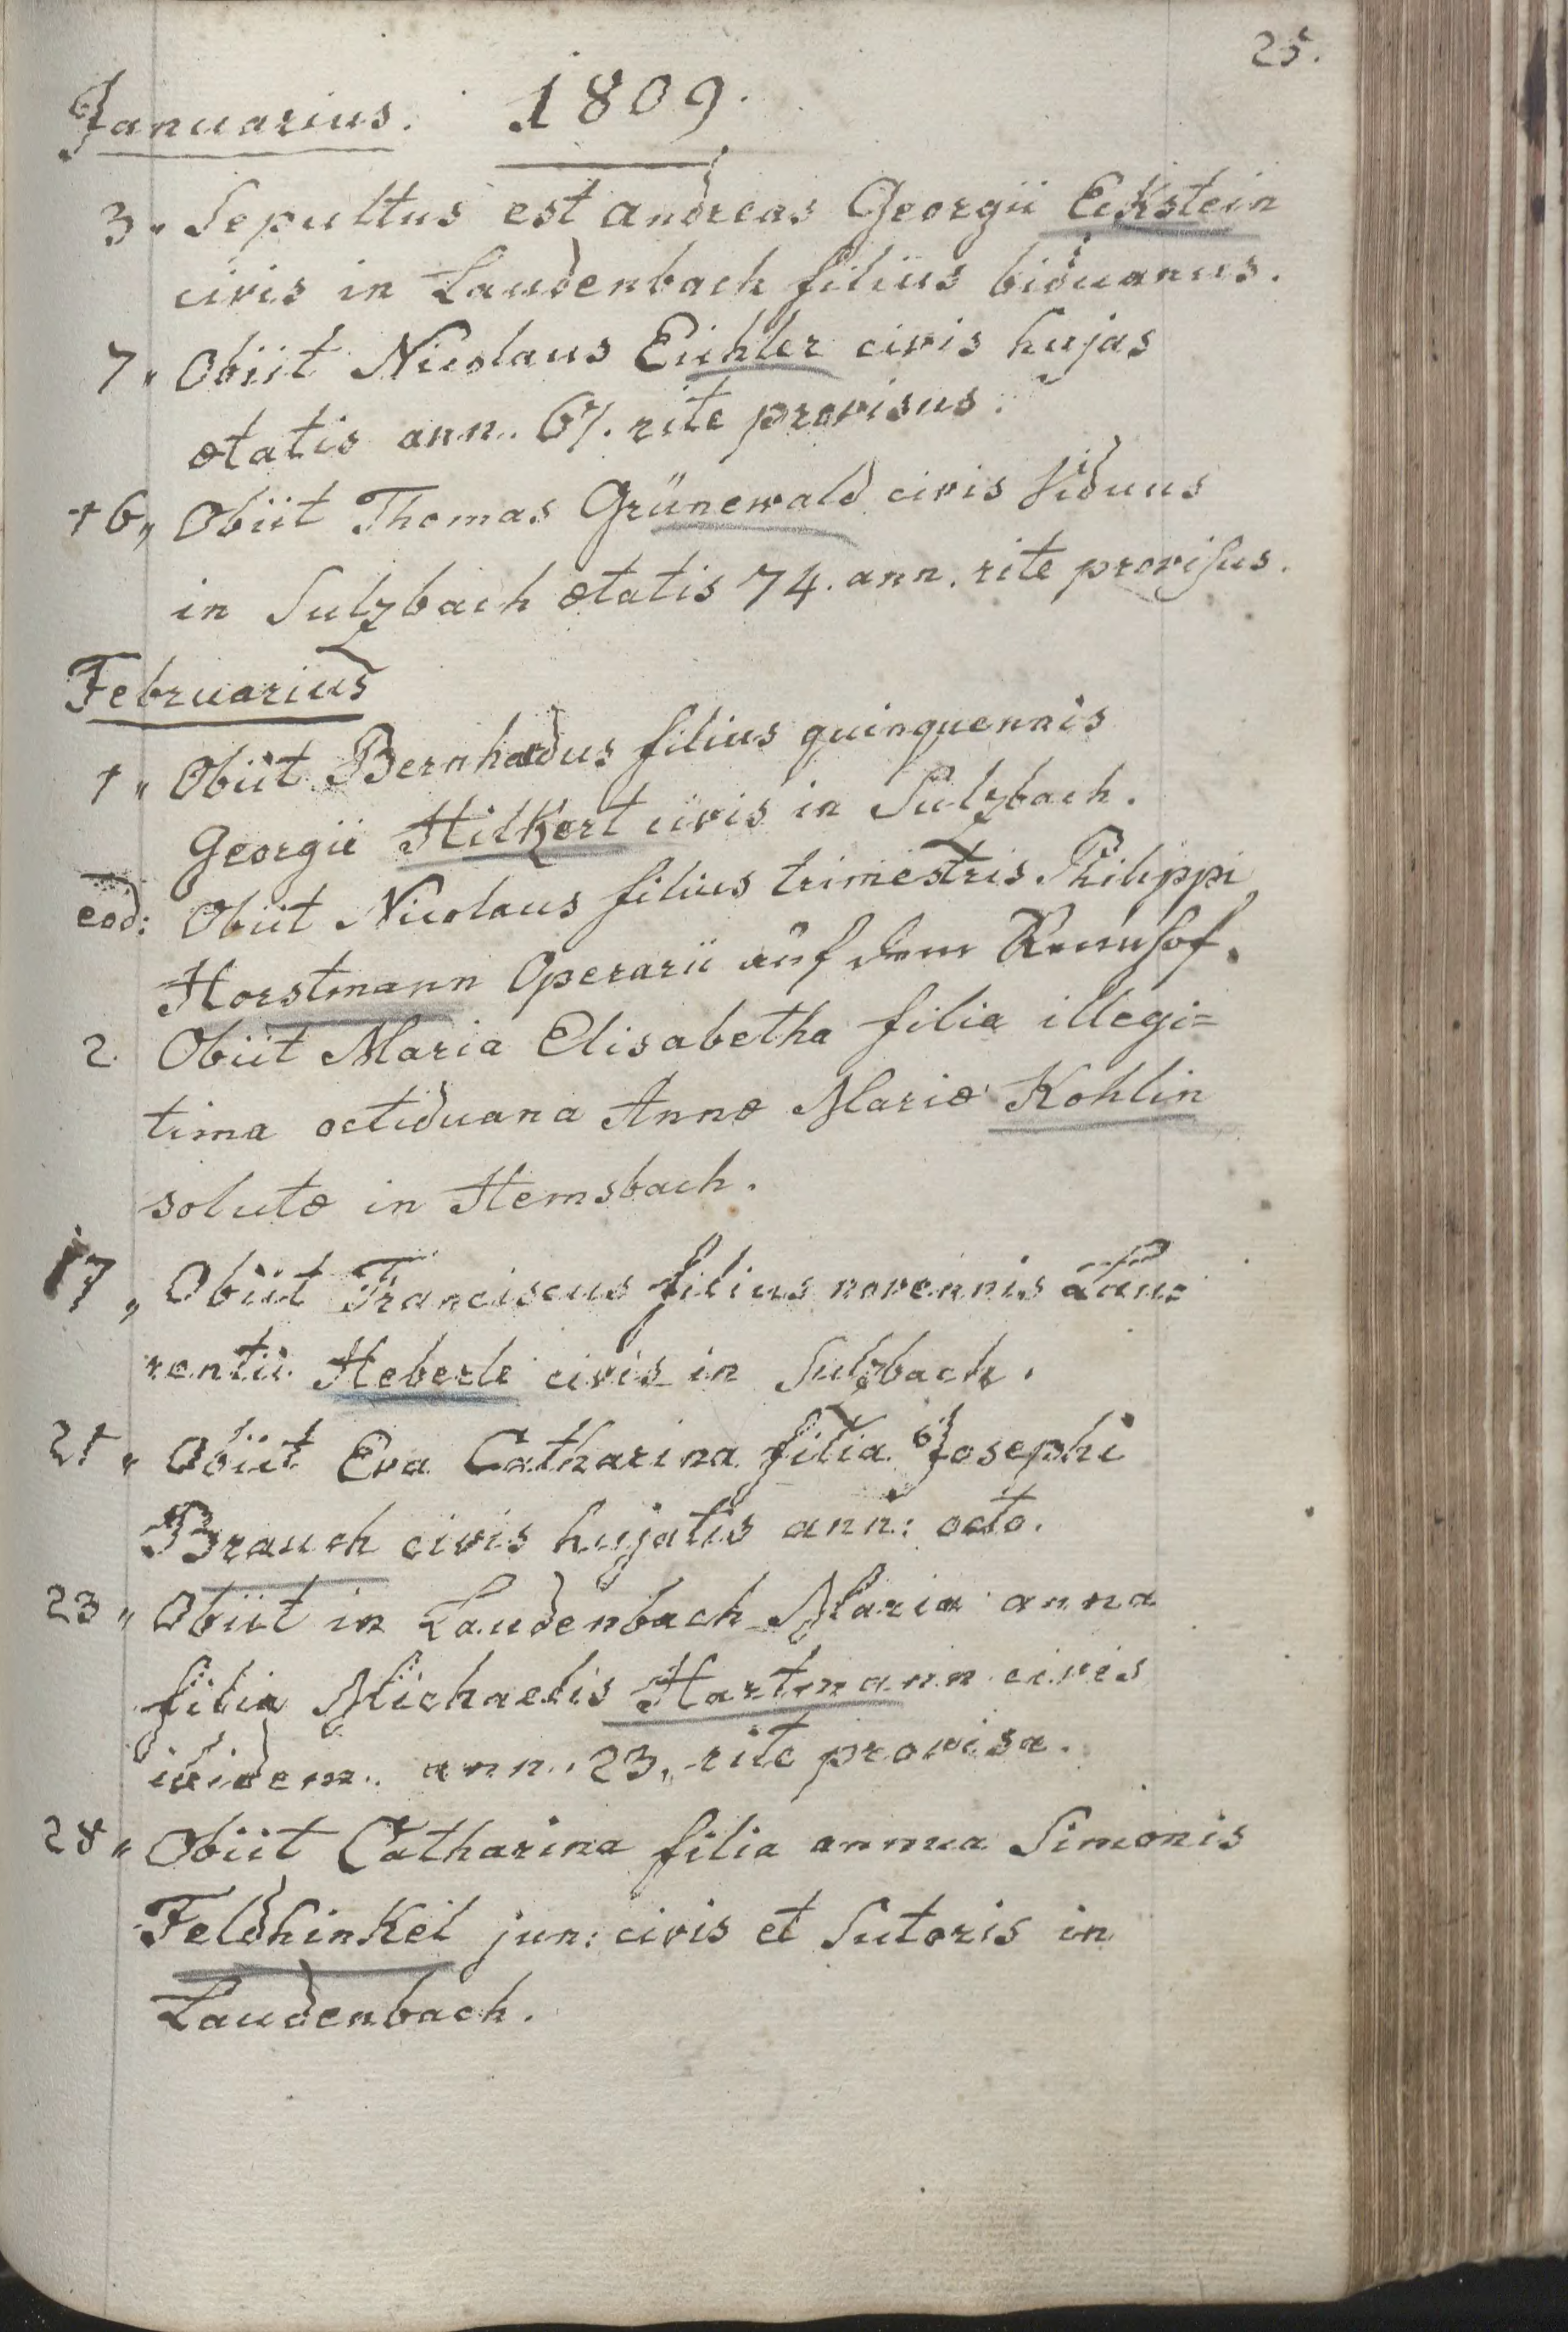 25.
Januarius. 1809.
3. Sepultus est andreas Georgii Eckstein
civis in Laudenbach filius biduanus.
7. Obiit Nicolaus Eichler civis hujas
ætatis ann. 67. rite provisus.
16. Obiit Thomas Grünewald civis Viduus
in Sulzbach ætatis 74. ann. rite provisus.
Februarius
1. Obiit Bernhardus filius quinquennis
Georgii Hilkert civis in Sulzbach.
eod: Obiit Nicolaus filius trimestris Philippi
Horstmann Operarii auf dem Rennhof.
2. Obiit Maria Elisabetha filia illegi=
tima octiduana Annæ Mariæ Kohlin
solutæ in Hemsbach.
17. Obiit Franciscus filius novennis Lau=
rentii Heberle civis in Sulzbach.
21. Obiit Eva Catharina filia Josephi
Brauch civis hujatis ann: octo.
23. Obiit in Laudenbach Maria anna
filia Michaelis Hartmann civis
ibidem. ann. 23. rite provisa.
28. Obiit Catharina filia annua Simonis
Feldhinkel jun: civis et Sutoris in
Laudenbach.